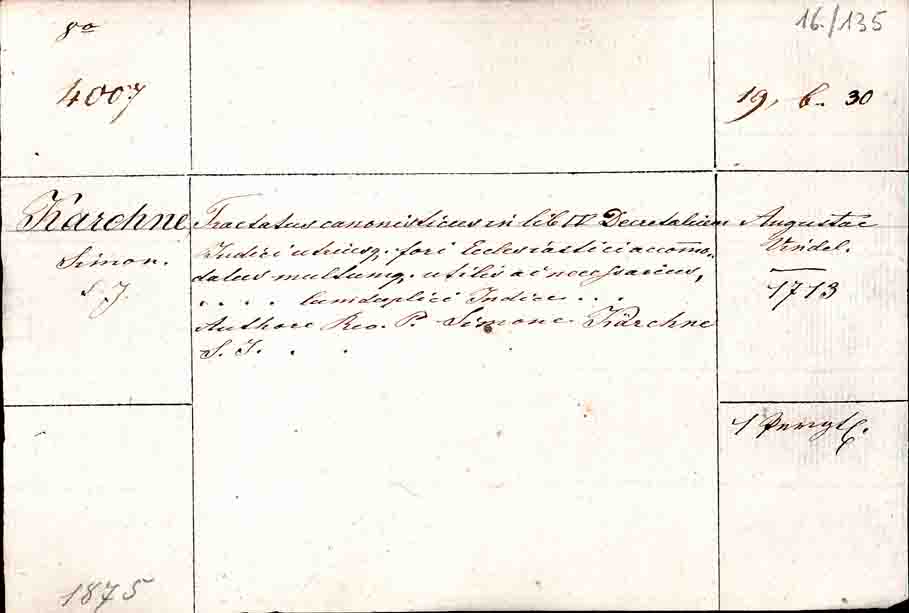 8º
16./135
4007
19, b. 30
Karchne
Simon.
S. J.
Tractatus canonisticus in lib IV Decretalium
Judici utriusq. fori Ecclesiastici accom̄o-
datus multumq. utilis ac necessarius,
. . . . Cum duplici Indice . . .
Authore Reo. P. Simone Karchne
S. J. . .
Augustae
Vindel.
1713
1 Pergt.
1875